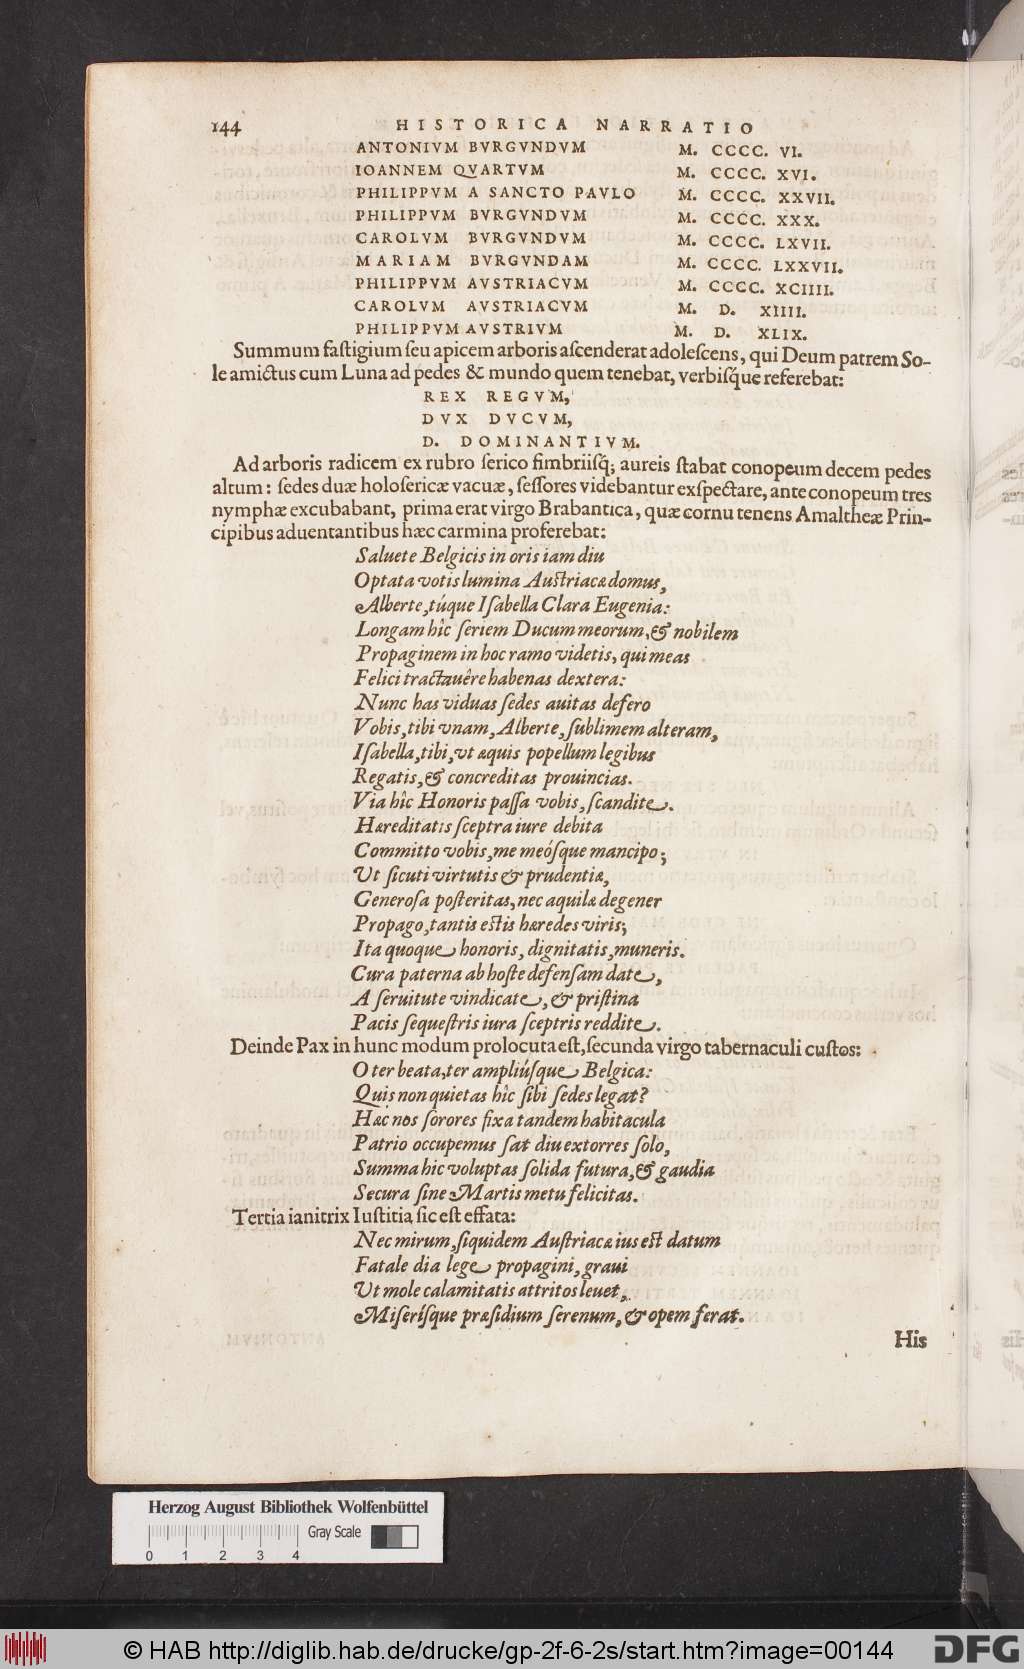 144 HISTORICA NARRATIO
ANTONIVM BVRGVNDVM M. CCCC. VI.
IOANNEM QVARTVM M. CCCC. XVI.
PHILIPPVM A SANCTO PAVLO M. CCCC. XXVII.
PHILIPPVM BVRGVNDVM M. CCCC. XXX.
CAROLVM BVRGVNDVM M. CCCC. LXVII.
MARIAM BVRGVNDAM M. CCCC. LXXVII.
PHILIPPVM AVSTRIACVM M. CCCC. XCIIII.
CAROLVM AVSTRIACVM M. D. XIIII.
PHILIPPVM AVSTRIVM M. D. XLIX.
Summum faſtigium ſeu apicem arboris aſcenderat adoleſcens, qui Deum patrem So-
le amictus cum Luna ad pedes & mundo quem tenebat, verbiſq́ue referebat:
REX REGVM,
DVX DVCVM,
D. DOMINANTIVM.
Ad arboris radicem ex rubro ſerico fimbriiſq́; aureis ſtabat conopeum decem pedes
altum: ſedes duæ holoſericæ vacuæ, ſeſſores videbantur exſpectare, ante conopeum tres
nymphæ excubabant, prima erat virgo Brabantica, quæ cornu tenens Amaltheæ Prin-
cipibus aduentantibus hæc carmina proferebat:
Saluete Belgicis in oris iam diu
Optata votis lumina Auſtriacæ domus,
Alberte, túque Iſabella Clara Eugenia:
Longam hîc ſeriem Ducum meorum, & nobilem
Propaginem in hoc ramo videtis, qui meas
Felici tractauêre habenas dextera:
Nunc has viduas ſedes auitas defero
Vobis, tibi vnam, Alberte, ſublimem alteram,
Iſabella, tibi, vt æquis popellum legibus
Regatis, & concreditas prouincias.
Via hîc Honoris paſſa vobis, ſcandite.
Hæreditatis ſceptra iure debita
Committo vobis, me meóſque mancipo;
Ut ſicuti virtutis & prudentiæ,
Generoſa poſteritas, nec aquilæ degener
Propago, tantis eſtis hæredes viris;
Ita quoque honoris, dignitatis, muneris.
Cura paterna ab hoſte defenſam date,
A ſeruitute vindicate, & priſtina
Pacis ſequeſtris iura ſceptris reddite.
Deinde Pax in hunc modum prolocuta eſt, ſecunda virgo tabernaculi cuſtos:
O ter beata, ter ampliúſque Belgica:
Quis non quietas hîc ſibi ſedes legat?
Hæc nos ſorores fixa tandem habitacula
Patrio occupemus ſat diu extorres ſolo,
Summa hic voluptas ſolida futura, & gaudia
Secura ſine Martis metu felicitas.
Tertia ianitrix Iuſtitia ſic eſt effata:
Nec mirum, ſiquidem Auſtriacæ ius eſt datum
Fatale dia lege propagini, graui
Ut mole calamitatis attritos leuet,
Miſeríſque præſidium ſerenum, & opem ferat.
His
Herzog August Bibliothek Wolfenbüttel
Gray Scale
0 1 2 3 4
© HAB http://diglib.hab.de/drucke/gp-2f-6-2s/start.htm?image=00144
DFG